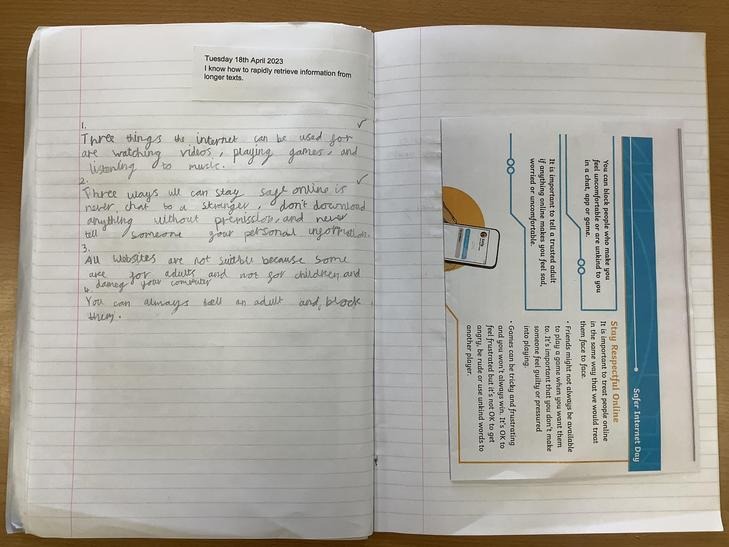 Tuesday 18th April 2023
I know how to rapidly retrieve information from
longer texts.
1.
Three things the internet can be used for
are watching videos, playing games, and
listening to music.
2.
Three ways we can stay safe online is
never chat to a stranger, don't download
anything without premission, and never
tell someone your personal information.
3.
All websites are not suitable because some
are for adults and not for children, and
4. dameg your computer
You can always tell an adult and block
them.
Safer Internet Day
You can block people who make you
feel uncomfortable or are unkind to you
in a chat, app or game.
It is important to tell a trusted adult
if anything online makes you feel sad,
worried or uncomfortable.
Stay Respectful Online
It is important to treat people online
in the same way that we would treat
them face to face.
• Friends might not always be available
to play a game when you want them
to. It's important that you don't make
someone feel guilty or pressured
into playing.
• Games can be tricky and frustrating
and you won't always win. It's OK to
feel frustrated but it's not OK to get
angry, be rude or use unkind words to
another player.